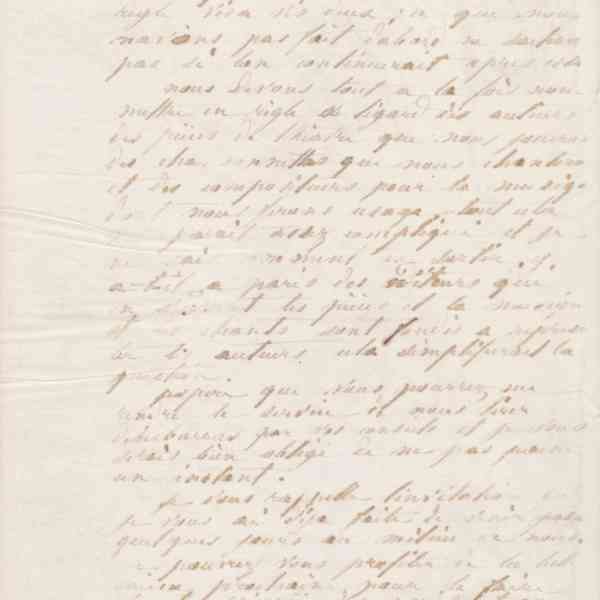 règle vis à vis eux, ce que nous
n'avions pas fait d'abord ne sachant
pas si l'on continuerait après cela
nous devons tout à la fois nous
mettre en règle à l'égard des auteurs
des pièces de théâtre que nous jouerons
des chansonnettes que nous chantons
et des compositeurs pour la musique
dont nous ferons usage tout cela
parait assez compliqué et je
ne sais comment en sortir. y
a-t-il a paris des éditeurs qui
en les pièces et la musique
et chants sont
de auteurs cela simplifierait la
question.
j'espère que vous pourrez me
rendre le service de nous tirer
d'embarras par vos conseils et je vous
serais bien obligé de ne pas perdre
un instant.
je vous rappelle l'invitation
je vous ai déja faite de venir passer
quelques jours au milieu de nous
pourrez vous profiter de la
prochaine pour le faire